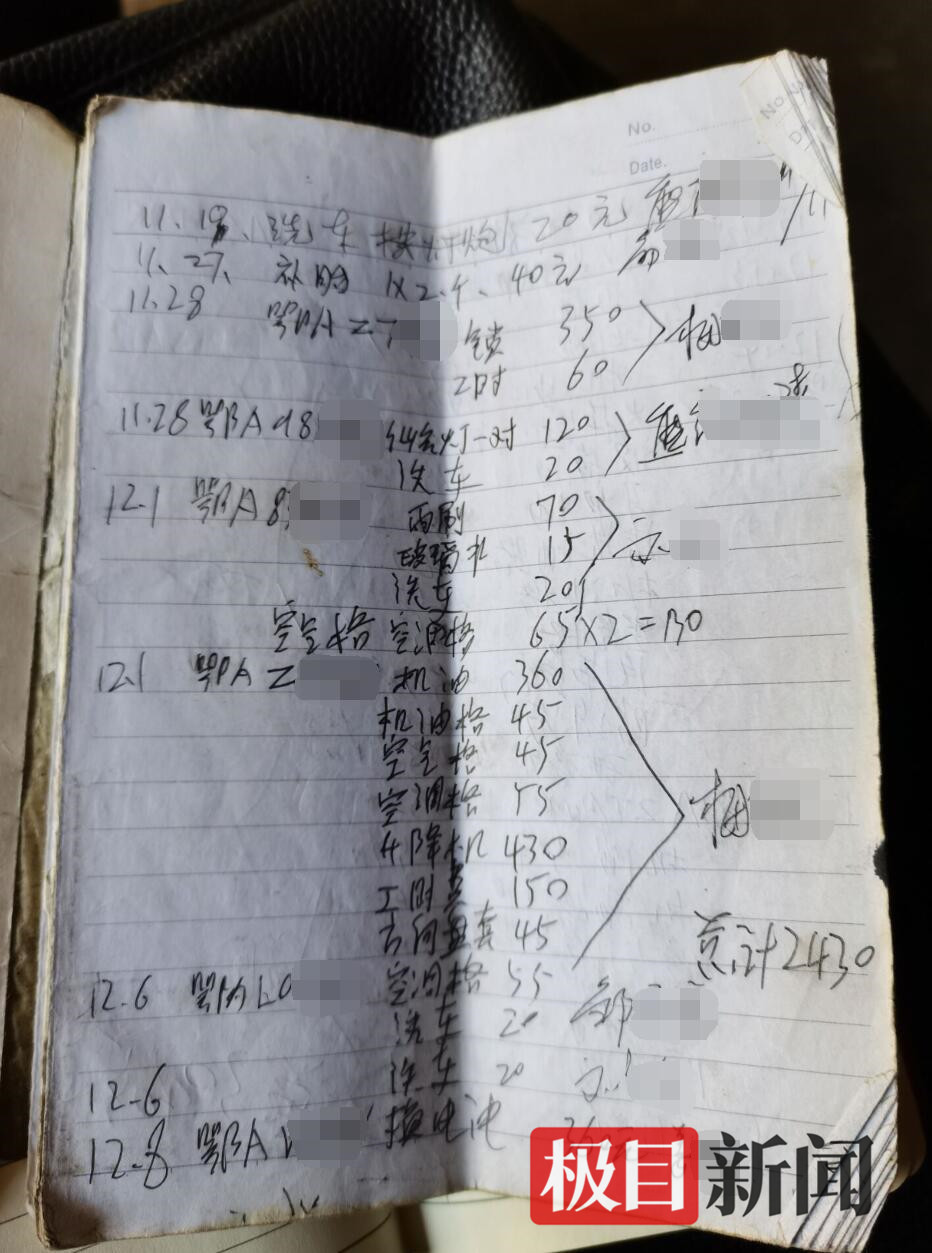 No.
Date.
11.18、洗车 换灯炮 20元
11.27、补胎 1×2.个、40元
11.28 鄂A Z7 锁 350
工时 60
11.28 鄂A 98 灯一对 120
洗车 20
12.1 鄂A 8 雨刷 70
玻璃水 15
洗车 20
空气格 空调格 65×2=130
12.1 鄂A Z 机油 360
机油格 45
空气格 45
空调格 55
升降机 430
工时费 150
方向盘套 45
总计2430
12.6 鄂A L0 空调格 55
洗车 20
12.6 洗车 20
12.8 鄂A 换电池
极目新闻